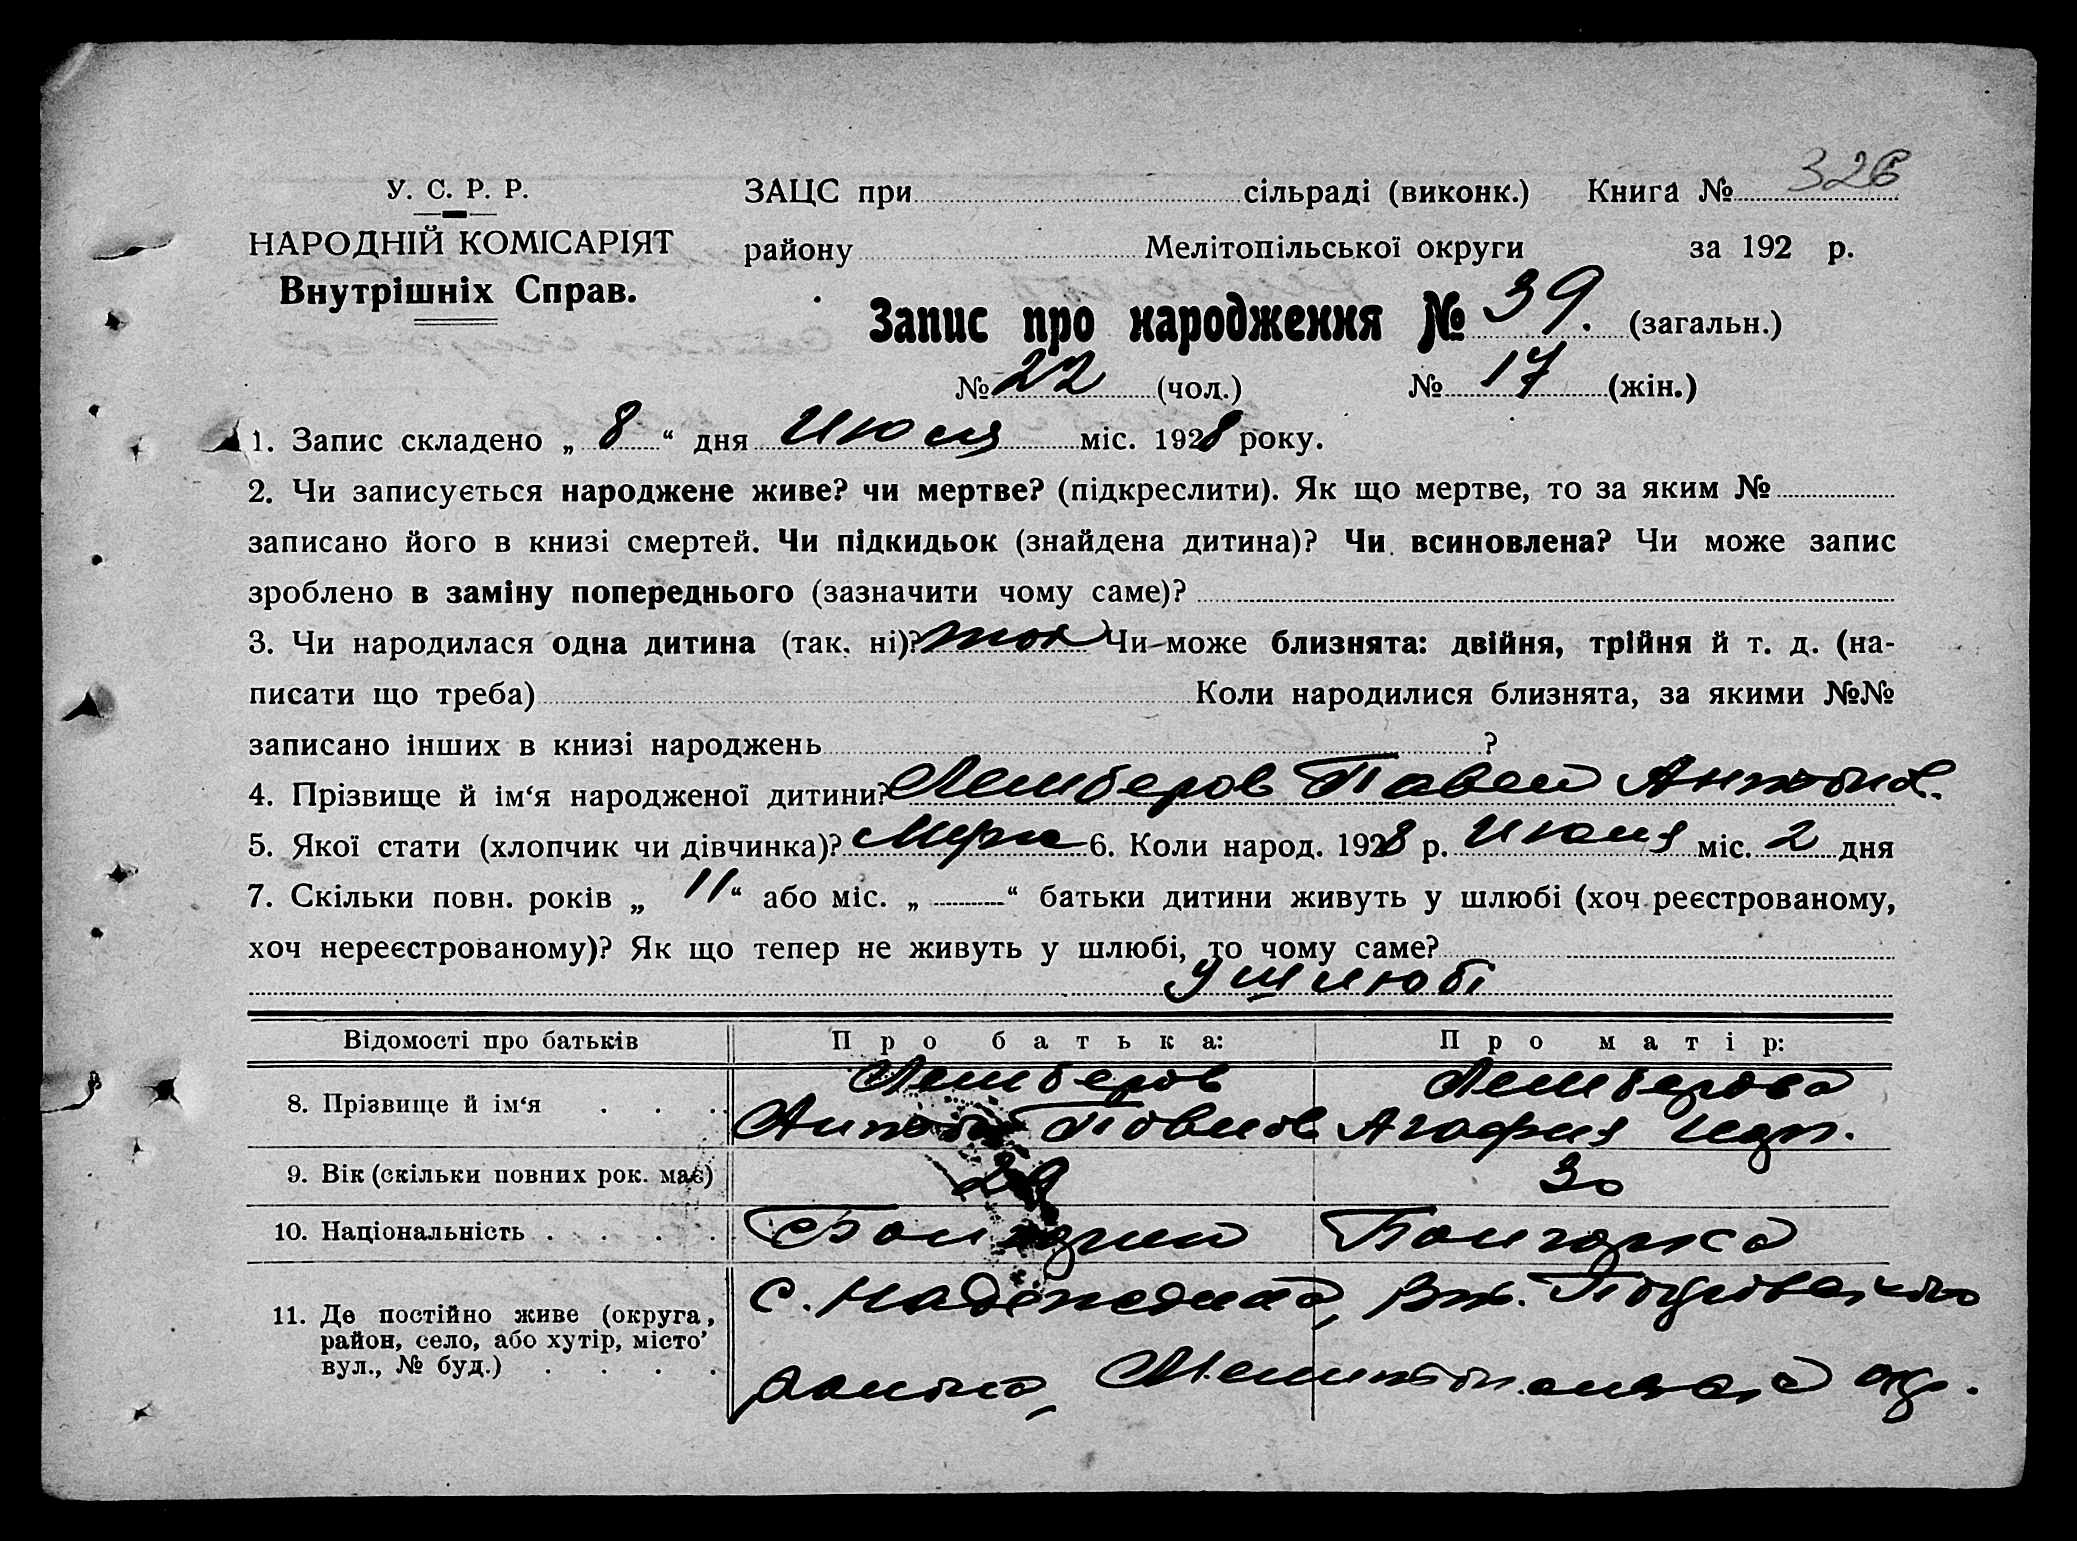 326
У. С. Р. Р.
ЗАЦС при сільраді (виконк.) Книга №
НАРОДНІЙ КОМІСАРІЯТ
району Мелітопільської округи за 192 р.
Внутрішніх Справ.
Запис про народження № 39. (загальн.)
№ 22 (чол.) № 17 (жін.)
1. Запис складено „ 8 “ дня Июля міс. 1928 року.
2. Чи записується народжене живе? чи мертве? (підкреслити). Як що мертве, то за яким №
записано його в книзі смертей. Чи підкидьок (знайдена дитина)? Чи всиновлена? Чи може запис
зроблено в заміну попереднього (зазначити чому саме)?
3. Чи народилася одна дитина (так, ні)? так Чи може близнята: двійня, трійня й т. д. (на-
писати що треба) Коли народилися близнята, за якими №№
записано інших в книзі народжень ?
4. Прізвище й ім‘я народженої дитини? Лемберов Павел Антонов.
5. Якої стати (хлопчик чи дівчинка)? 6. Коли народ. 1928 р. Июля міс. 2 дня
7. Скільки повн. років „ 11 “ або міс. „ — “ батьки дитини живуть у шлюбі (хоч реєстрованому,
хоч нереєстрованому)? Як що тепер не живуть у шлюбі, то чому саме?
у шлюбі
Відомості про батьків Про батька: Про матір:
8. Прізвище й ім‘я . . . . Лемберов Лемберова
Антон Павлов Агафия
9. Вік (скільки повних рок. має) 29 30
10. Національність . . . . Болгарин Болгарка
11. Де постійно живе (округа, район, село, або хутір, місто’ вул., № буд.) . . . . с. Надеждина,
района, Мелитопольской окр.